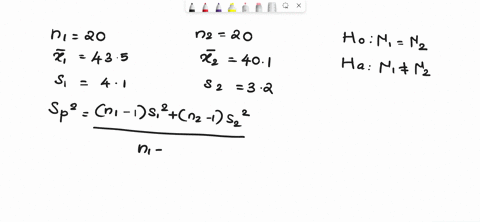 n₁ = 20
x̄₁ = 43.5
s₁ = 4.1
n₂ = 20
x̄₂ = 40.1
s₂ = 3.2
H₀ : N₁ = N₂
Ha : N₁ ≠ N₂
Sp² = (n₁ - 1) s₁² + (n₂ - 1) s₂²
n₁ -